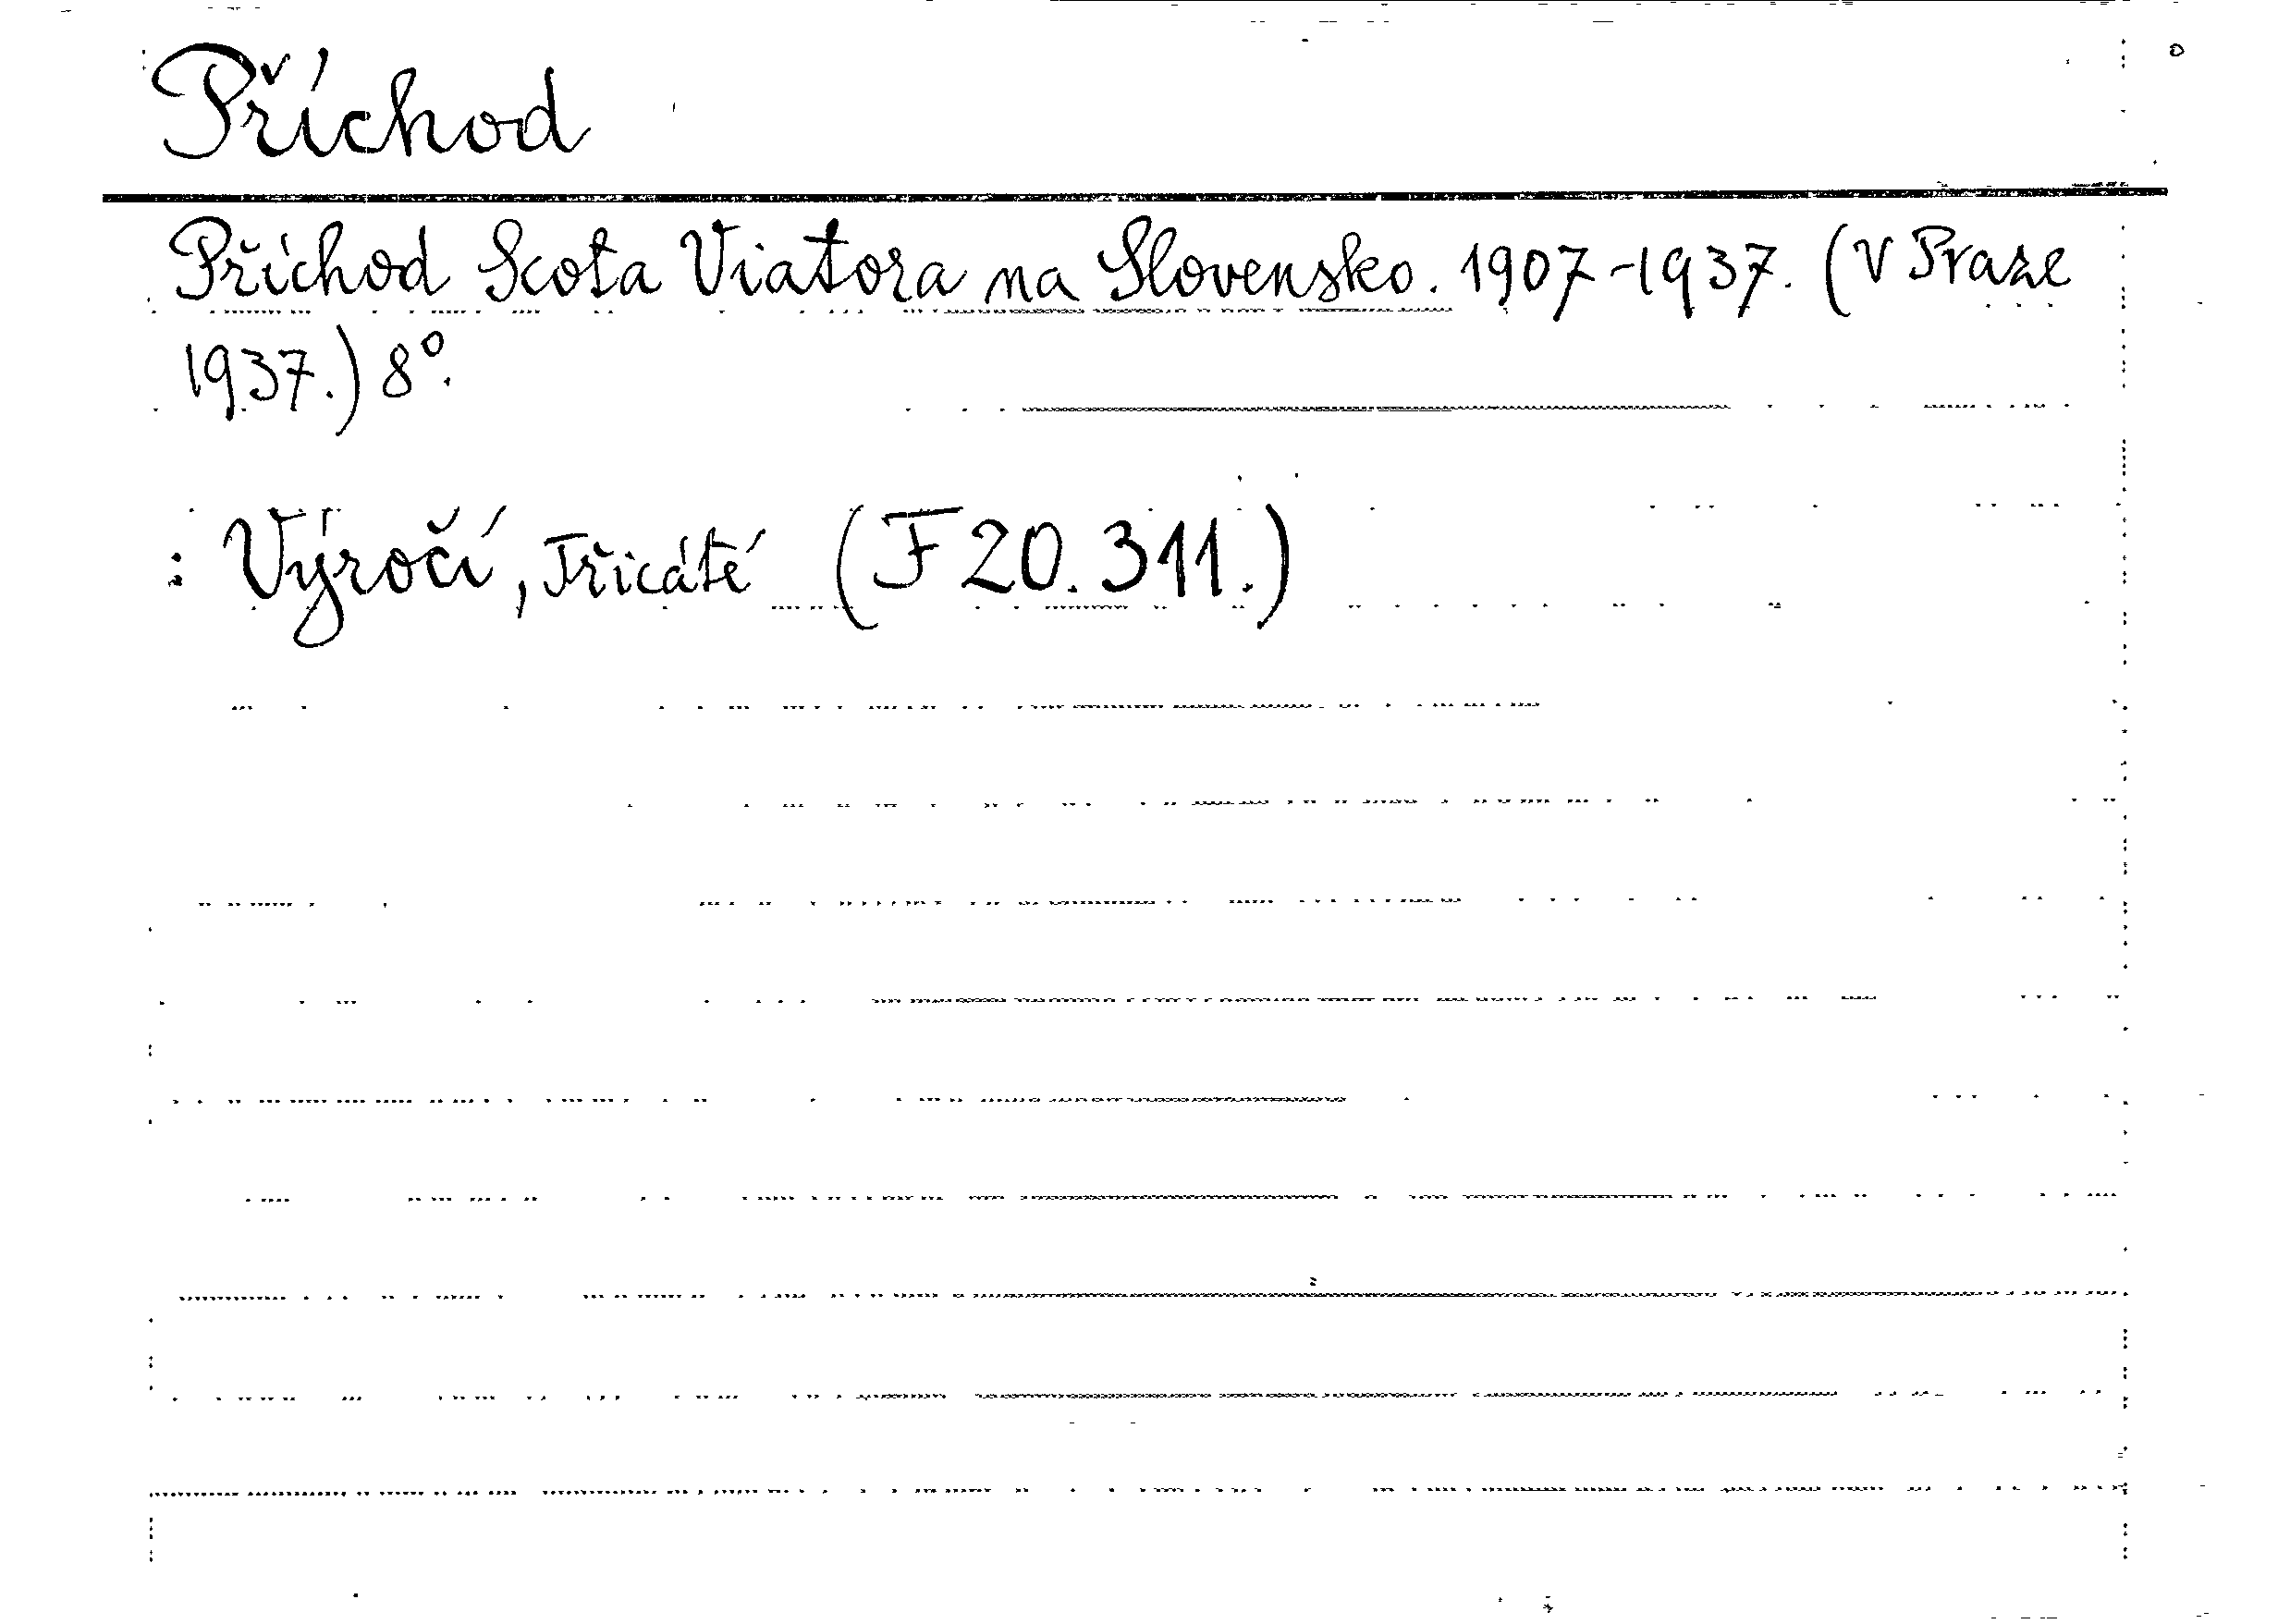 Příchod
Příchod Scota Viatora na Slovensko. 1907-1937. (V Praze
1937.) 8°.
: Výročí, Třicáté (F 20.311.)